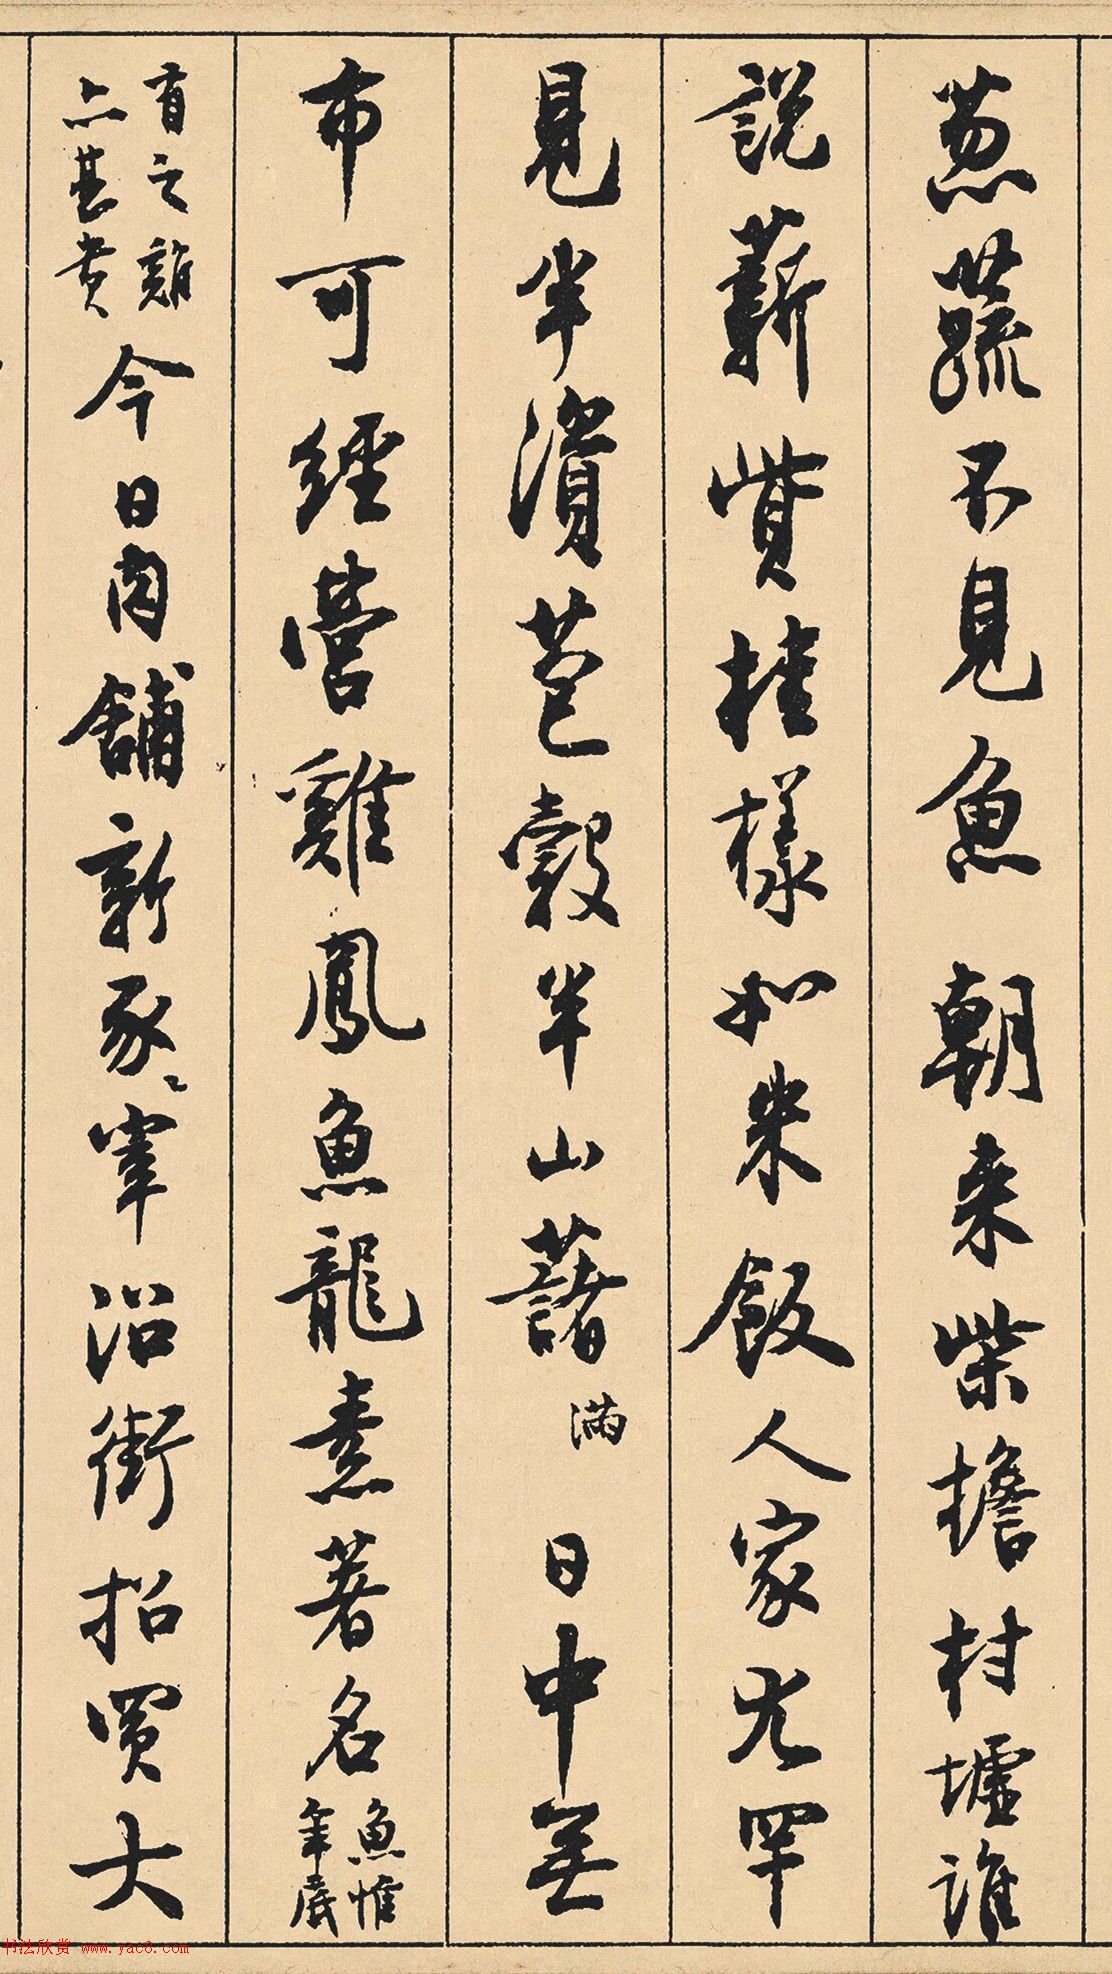 葱蔬不見魚朝来柴擔村墟誰
說薪貲桂樣如米飯人家尤罕
見半濱苞穀半山藷滿日中無
布可經營雞鳳魚龍素著名魚惟年底
有之雞亦甚貴今日肉舖新豕〻宰沿街招買大
书法欣赏 www.yac8.com